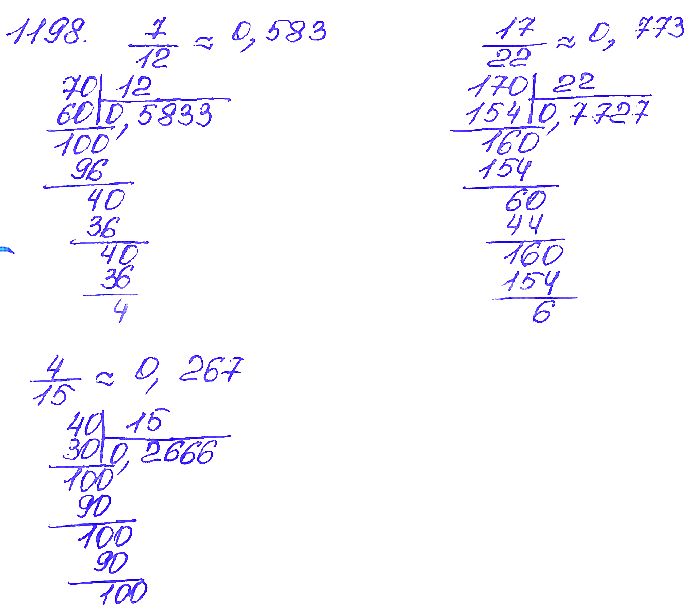 1198. 7/12 ≈ 0,583
70 | 12
60 | 0,5833
100
96
40
36
40
36
4
17/22 ≈ 0,773
170 | 22
154 | 0,7727
160
154
60
44
160
154
6
4/15 ≈ 0,267
40 | 15
30 | 0,2666
100
90
100
90
100